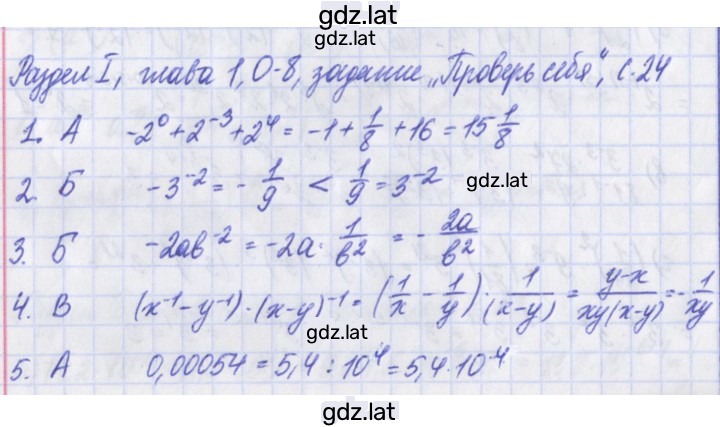 gdz.lat
Раздел I, глава 1, О-8, задание „Проверь себя“, с.24
1. А -2⁰ + 2⁻³ + 2⁴ = -1 + 1/8 + 16 = 15 1/8
2. Б -3⁻² = - 1/9 < 1/9 = 3⁻²
gdz.lat
3. Б -2ab⁻² = -2a · 1/b² = - 2a/b²
4. В (x⁻¹ - y⁻¹) · (x-y)⁻¹ = (1/x - 1/y) · 1/(x-y) = y-x/xy(x-y) = - 1/xy
gdz.lat
5. А 0,00054 = 5,4 : 10⁴ = 5,4 · 10⁻⁴
gdz.lat